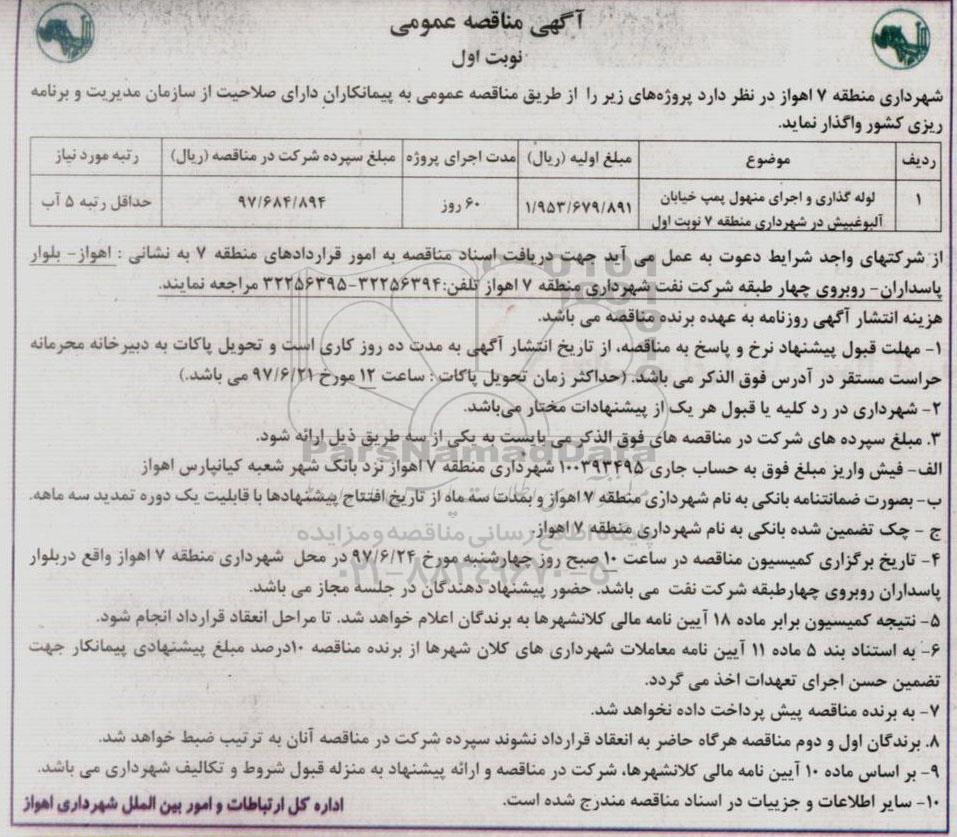 آگهی مناقصه عمومی
نوبت اول
شهرداری منطقه ۷ اهواز در نظر دارد پروژه‌های زیر را از طریق مناقصه عمومی به پیمانکاران دارای صلاحیت از سازمان مدیریت و برنامه
ریزی کشور واگذار نماید.
ردیف موضوع مبلغ اولیه (ریال) مدت اجرای پروژه مبلغ سپرده شرکت در مناقصه (ریال) رتبه مورد نیاز
۱ لوله گذاری و اجرای منهول پمپ خیابان ۱/۹۵۳/۶۷۹/۸۹۱ ۶۰ روز ۹۷/۶۸۴/۸۹۴ حداقل رتبه ۵ آب
آلبوغبیش در شهرداری منطقه ۷ نوبت اول
از شرکتهای واجد شرایط دعوت به عمل می آید جهت دریافت اسناد مناقصه به امور قراردادهای منطقه ۷ به نشانی : اهواز- بلوار
پاسداران- روبروی چهار طبقه شرکت نفت شهرداری منطقه ۷ اهواز تلفن:۳۲۲۵۶۳۹۴-۳۲۲۵۶۳۹۵ مراجعه نمایند.
هزینه انتشار آگهی روزنامه به عهده برنده مناقصه می باشد.
۱- مهلت قبول پیشنهاد نرخ و پاسخ به مناقصه، از تاریخ انتشار آگهی به مدت ده روز کاری است و تحویل پاکات به دبیرخانه محرمانه
حراست مستقر در آدرس فوق الذکر می باشد. (حداکثر زمان تحویل پاکات : ساعت ۱۲ مورخ ۹۷/۶/۲۱ می باشد.)
۲- شهرداری در رد کلیه یا قبول هر یک از پیشنهادات مختار می‌باشد.
۳. مبلغ سپرده های شرکت در مناقصه های فوق الذکر می بایست به یکی از سه طریق ذیل ارائه شود.
الف- فیش واریز مبلغ فوق به حساب جاری ۱۰۰۳۹۳۴۹۵ شهرداری منطقه ۷ اهواز نزد بانک شهر شعبه کیانپارس اهواز
ب- بصورت ضمانتنامه بانکی به نام شهرداری منطقه ۷ اهواز و بمدت سه ماه از تاریخ افتتاح پیشنهادها با قابلیت یک دوره تمدید سه ماهه.
ج - چک تضمین شده بانکی به نام شهرداری منطقه ۷ اهواز.
۴- تاریخ برگزاری کمیسیون مناقصه در ساعت ۱۰ صبح روز چهارشنبه مورخ ۹۷/۶/۲۴ در محل شهرداری منطقه ۷ اهواز واقع دربلوار
پاسداران روبروی چهارطبقه شرکت نفت می باشد. حضور پیشنهاد دهندگان در جلسه مجاز می باشد.
۵- نتیجه کمیسیون برابر ماده ۱۸ آیین نامه مالی کلانشهرها به برندگان اعلام خواهد شد. تا مراحل انعقاد قرارداد انجام شود.
۶- به استناد بند ۵ ماده ۱۱ آیین نامه معاملات شهرداری های کلان شهرها از برنده مناقصه ۱۰درصد مبلغ پیشنهادی پیمانکار جهت
تضمین حسن اجرای تعهدات اخذ می گردد.
۷- به برنده مناقصه پیش پرداخت داده نخواهد شد.
۸. برندگان اول و دوم مناقصه هرگاه حاضر به انعقاد قرارداد نشوند سپرده شرکت در مناقصه آنان به ترتیب ضبط خواهد شد.
۹- بر اساس ماده ۱۰ آیین نامه مالی کلانشهرها، شرکت در مناقصه و ارائه پیشنهاد به منزله قبول شروط و تکالیف شهرداری می باشد.
۱۰- سایر اطلاعات و جزییات در اسناد مناقصه مندرج شده است.
اداره کل ارتباطات و امور بین الملل شهرداری اهواز
ParsNamadData
پایگاه اطلاع رسانی مناقصه و مزایده
۰۲۱-۸۸۳۴۹۶۷۰-۵